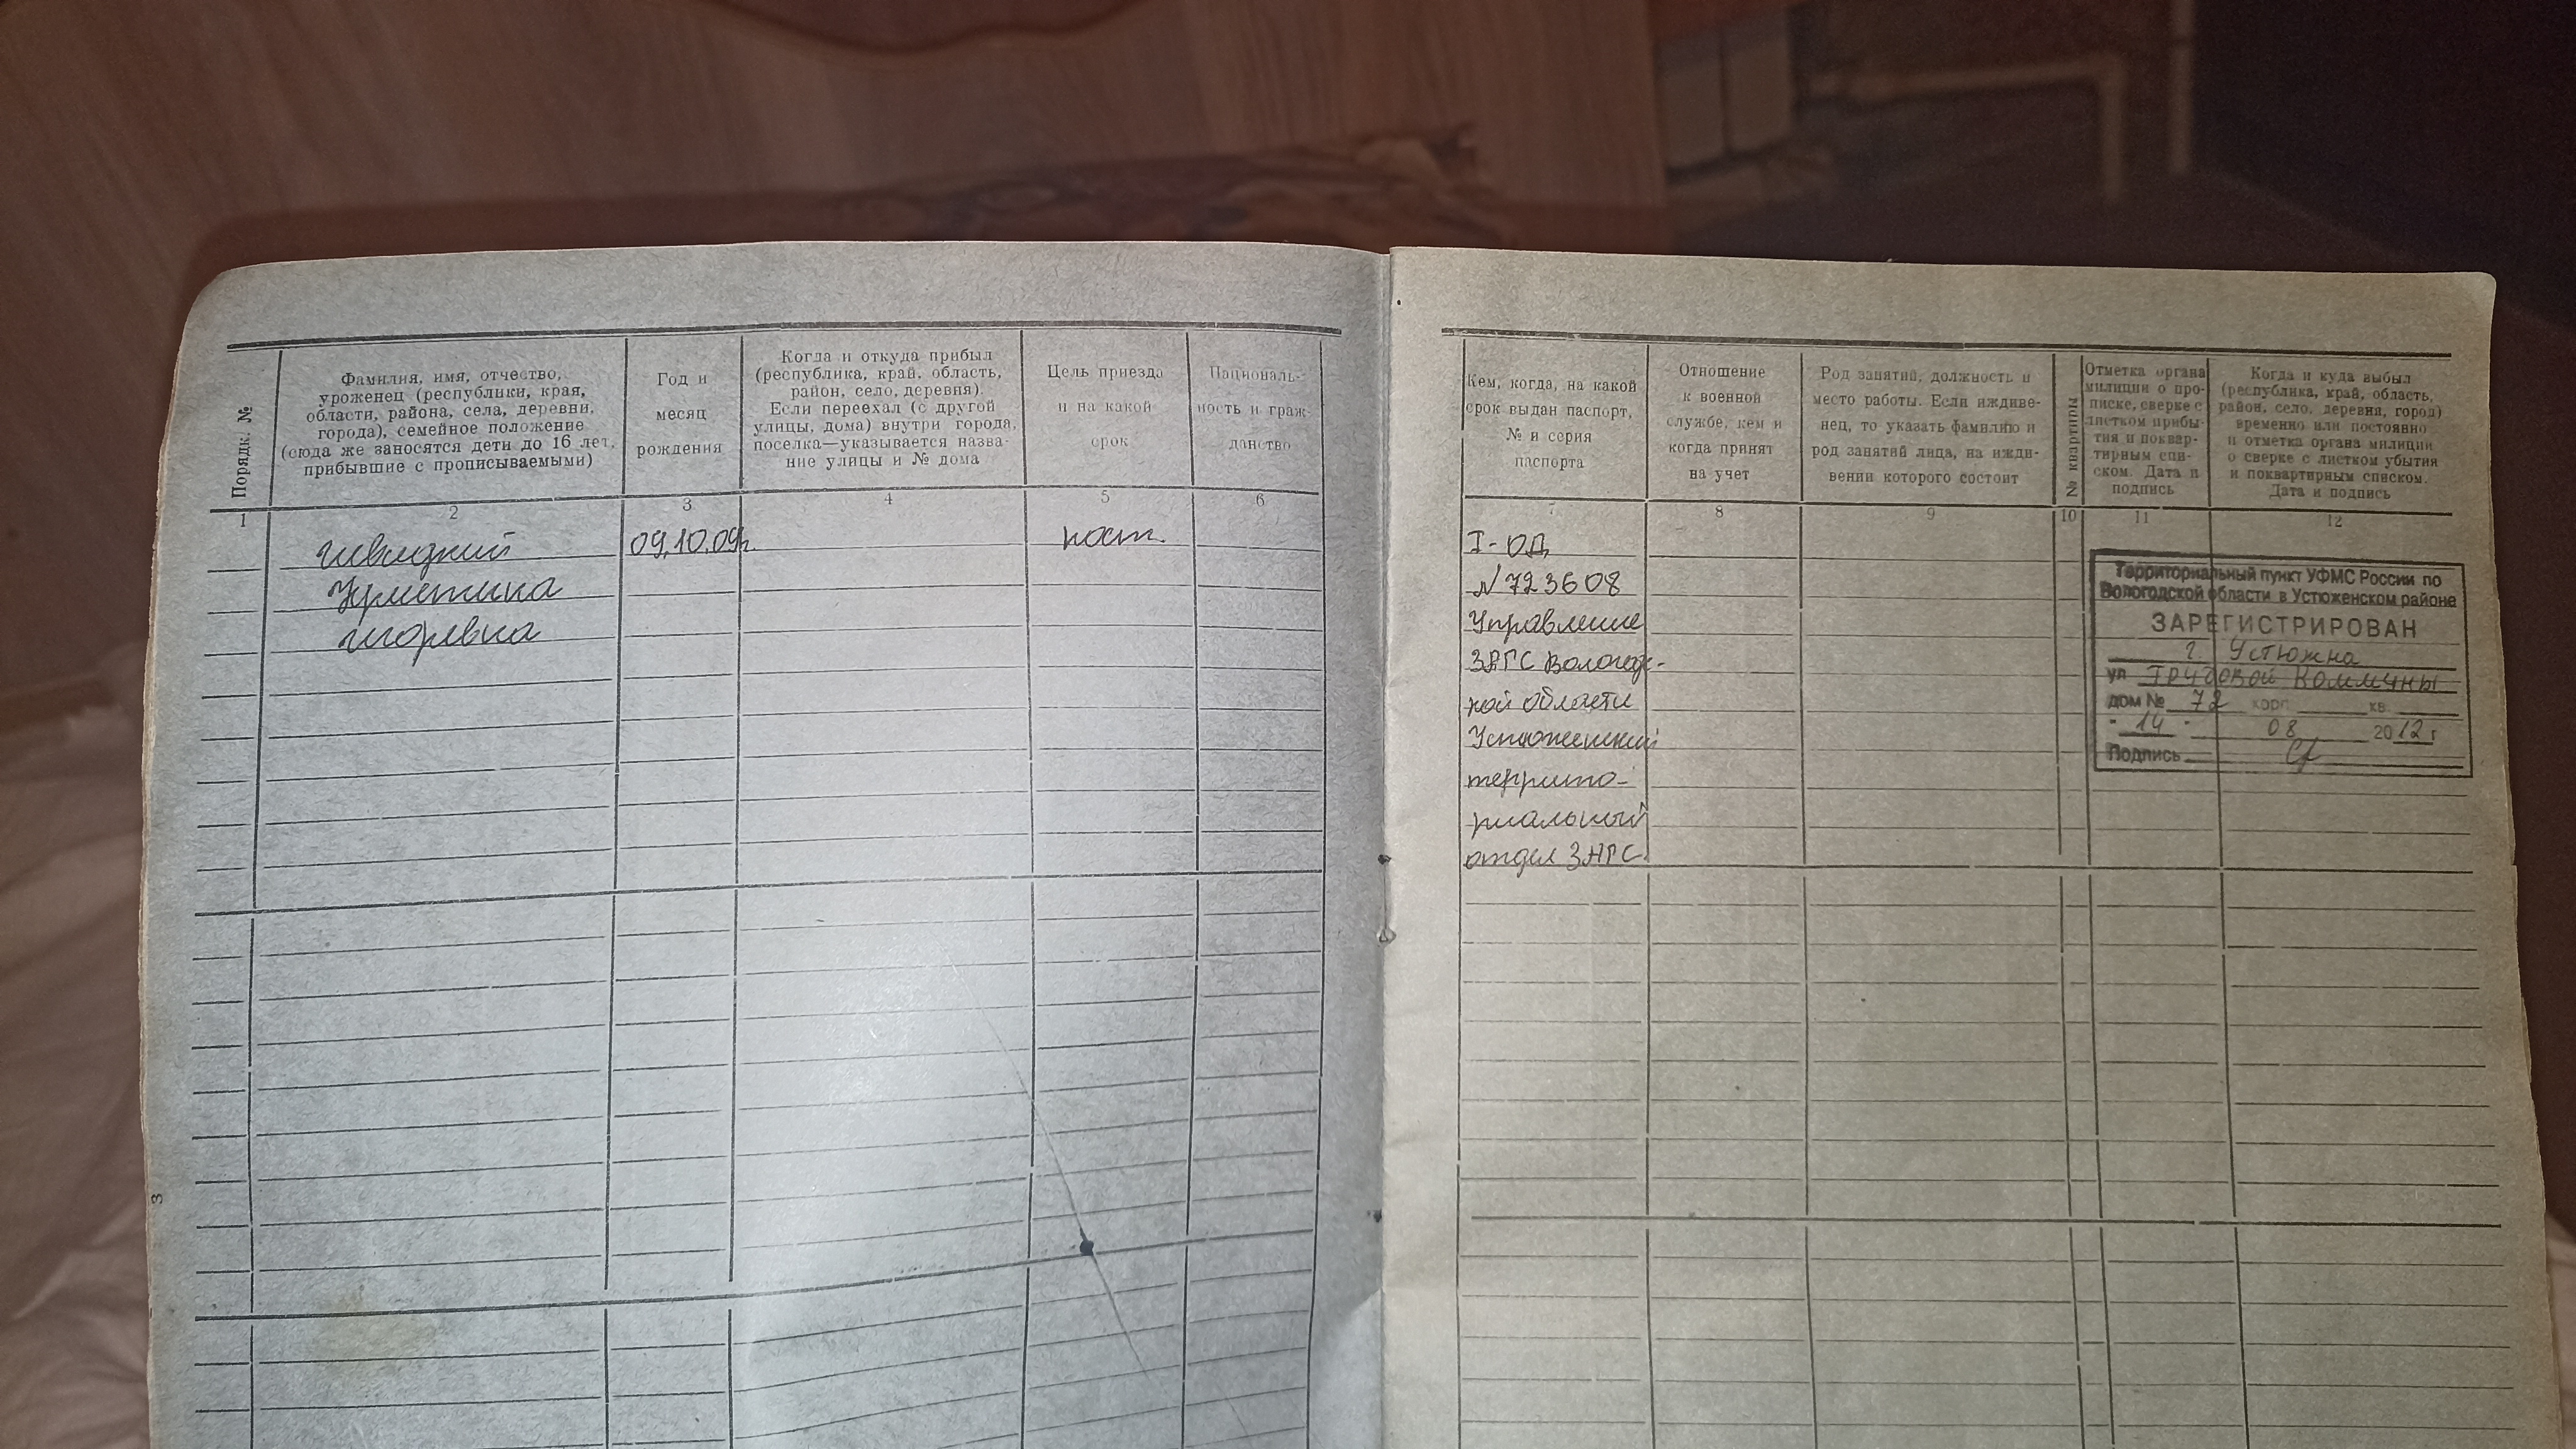 Порядк. №
Фамилия, имя, отчество,
уроженец (республики, края,
области, района, села, деревни,
города), семейное положение
(сюда же заносятся дети до 16 лет,
прибывшие с прописываемыми)
Год и
месяц
рождения
Когда и откуда прибыл
(республика, край, область,
район, село, деревня).
Если переехал (с другой
улицы, дома) внутри города,
поселка—указывается назва-
ние улицы и № дома
Цель приезда
и на какой
срок
Националь-
ность и граж-
данство
1 2 3 4 5 6
09.10.09г. пост.
Игоревна
3
Кем, когда, на какой
срок выдан паспорт,
№ и серия
паспорта
Отношение
к военной
службе, кем и
когда принят
на учет
Род занятий, должность и
место работы. Если иждиве-
нец, то указать фамилию и
род занятий лица, на ижди-
вении которого состоит
№ квартиры
Отметка органа
милиции о про-
писке, сверке с
листком прибы-
тия и поквар-
тирным спи-
ском. Дата и
подпись
Когда и куда выбыл
(республика, край, область,
район, село, деревня, город)
временно или постоянно
и отметка органа милиции
о сверке с листком убытия
и поквартирным списком.
Дата и подпись
7 8 9 10 11 12
I-ОД
№723608
Управление
ЗАГС Вологодс-
кой области
Устюженский
террито-
риальный
отдел ЗАГС.
Территориальный пункт УФМС России по
Вологодской области в Устюженском районе
ЗАРЕГИСТРИРОВАН
г. Устюжна
ул Трудовой Коммуны
дом № 72 корп. кв.
"14" 08 2012 г
Подпись